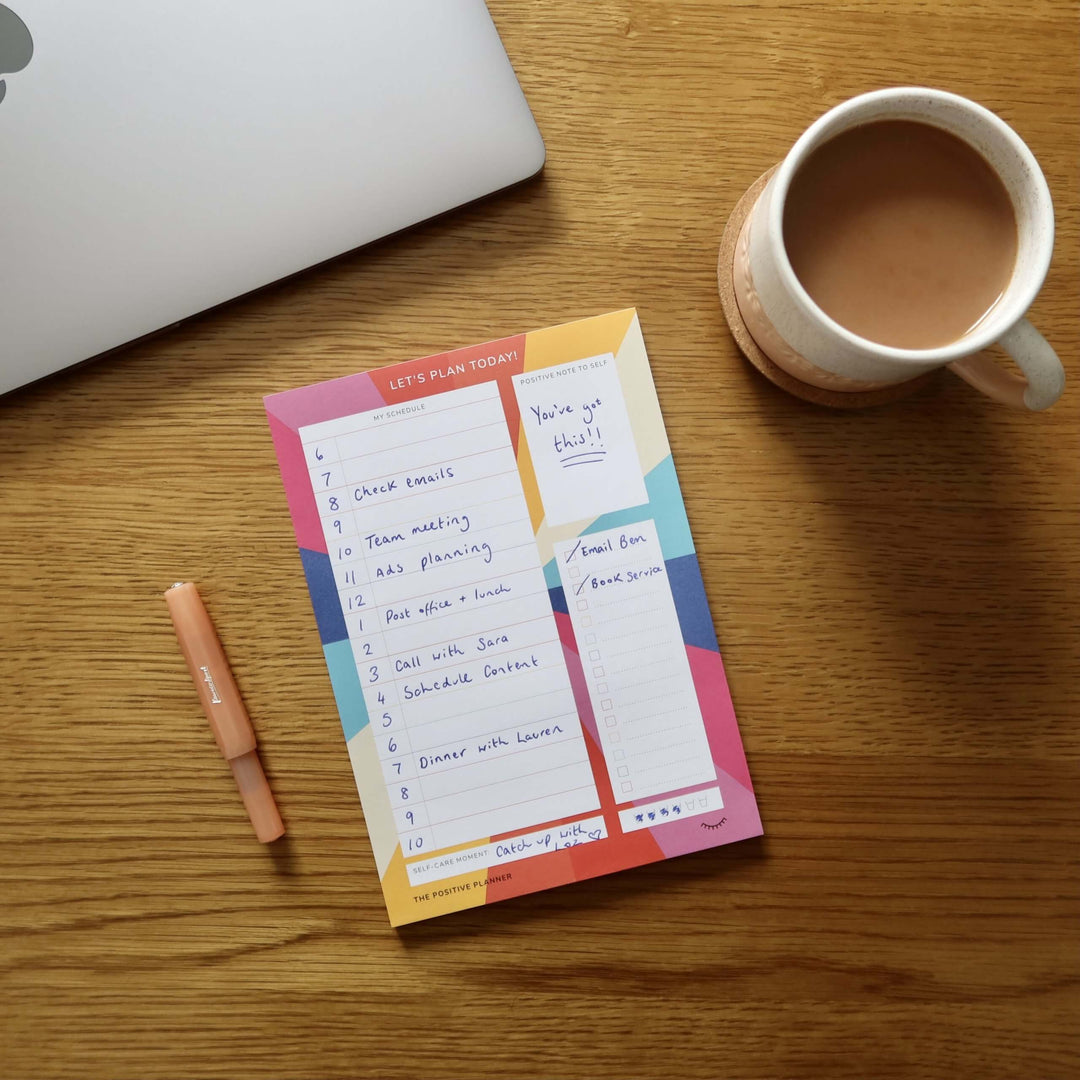 LET'S PLAN TODAY!
MY SCHEDULE
6
7
8 Check emails
9
10 Team meeting
11 Ads planning
12
1 Post office + lunch
2
3 Call with Sara
4 Schedule Content
5
6
7 Dinner with Lauren
8
9
10
SELF-CARE MOMENT: Catch up with
THE POSITIVE PLANNER
POSITIVE NOTE TO SELF
You've got
this!!
Email Ben
Book Service